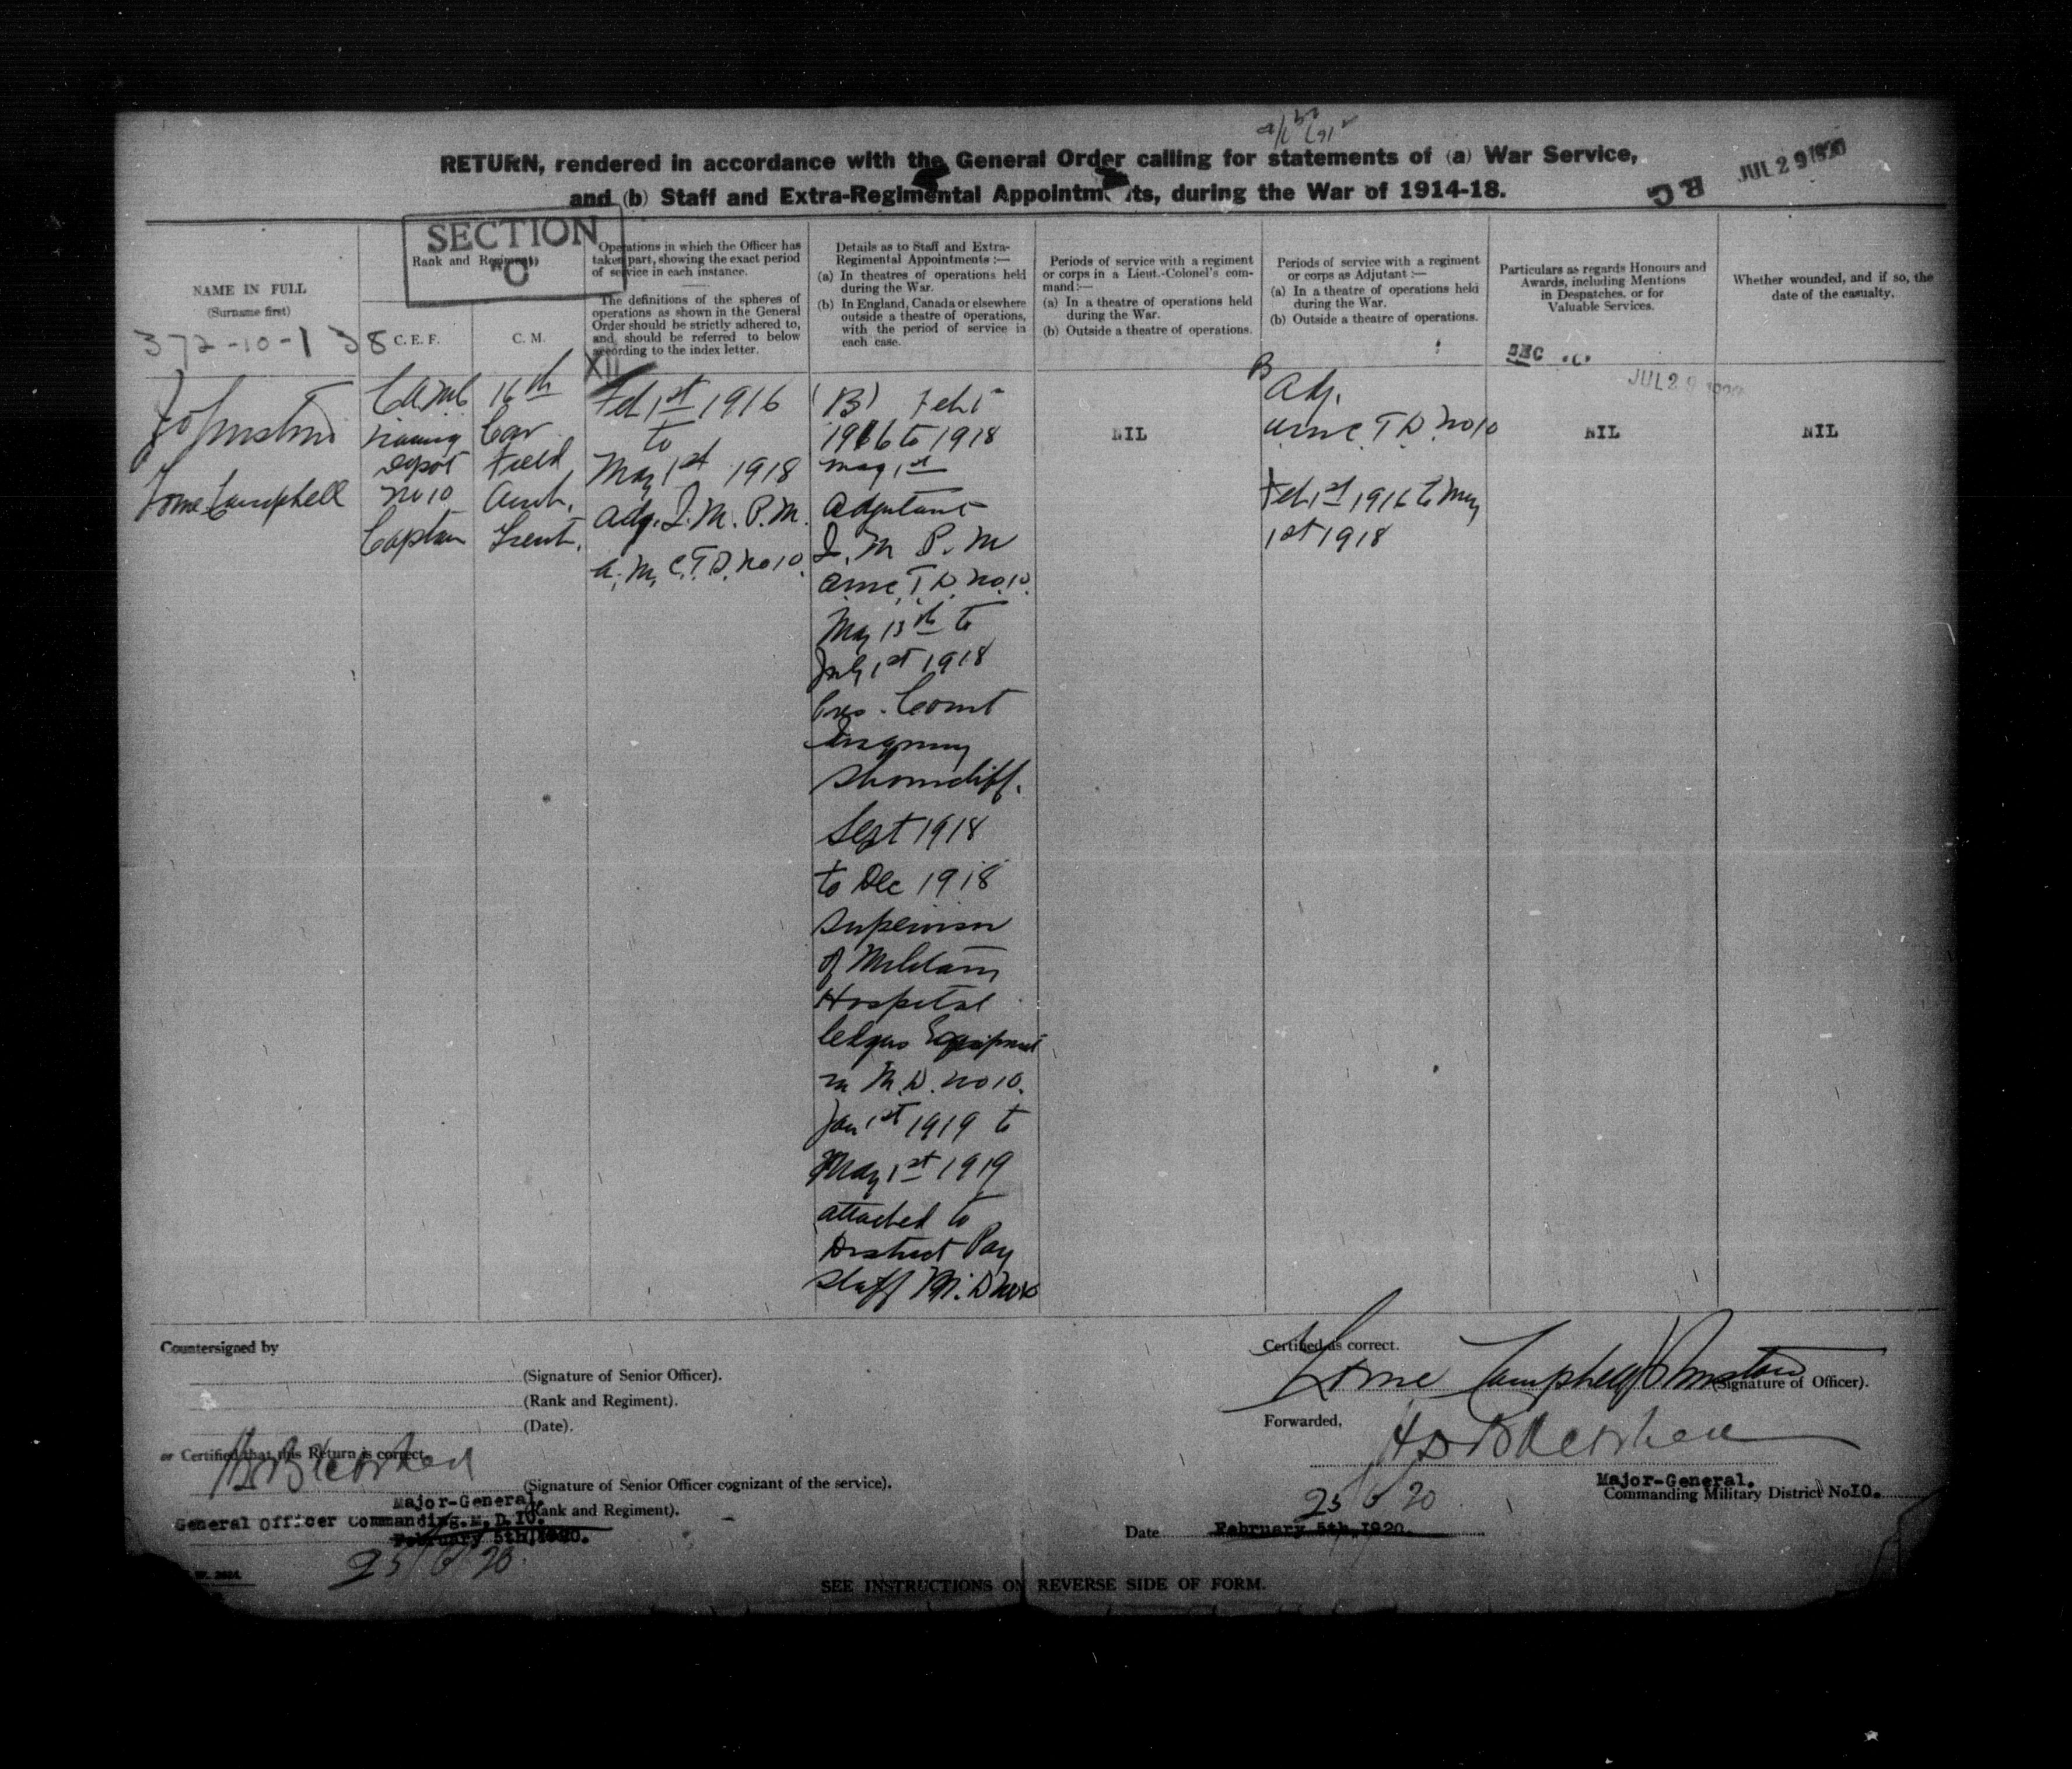 RETURN, rendered in accordance with the General Order calling for statements of (a) War Service,
and (b) Staff and Extra-Regimental Appointm ts, during the War of 1914-18.
JUL 29 1920
RG
SECTION
"C"
NAME IN FULL
(Surname first)
372-10-138
Rank and Regiment
C. E. F.
C. M.
Operations in which the Officer has
taken part, showing the exact period
of service in each instance.
The definitions of the spheres of
operations as shown in the General
Order should be strictly adhered to,
and should be referred to below
according to the index letter.
XII
Details as to Staff and Extra-
Regimental Appointments :—
(a) In theatres of operations held
during the War.
(b) In England, Canada or elsewhere
outside a theatre of operations,
with the period of service in
each case.
Periods of service with a regiment
or corps in a Lieut.-Colonel's com-
mand:—
(a) In a theatre of operations held
during the War.
(b) Outside a theatre of operations.
Periods of service with a regiment
or corps as Adjutant :—
(a) In a theatre of operations held
during the War.
(b) Outside a theatre of operations.
Particulars as regards Honours and
Awards, including Mentions
in Despatches, or for
Valuable Services.
SEC "C"
JUL 29 1920
Whether wounded, and if so, the
date of the casualty.
Johnston
Lorne Campbell
CAMC
Training
Depot
No 10
Captain
16th
Cav
Field
Amb.
Lieut.
Feb 1st 1916
to
May 1st 1918
Adj. I. M. P. M.
A. M. C. T. D. No 10.
(B) Feb 1st
1916 to 1918
May 1st
Adjutant
I. M P. M
AMC. T. D. No. 10.
May 13th to
July 1st 1918
Court
Shorncliff.
Sept 1918
to Dec 1918
Supervisor
of Military
Hospital
ledgers Equipment
in M. D. No 10.
Jan 1st 1919 to
May 1st 1919
attached to
District Pay
Staff M. D No 10
NIL
B
Adj.
AMC. T D. No 10
Feb 1st 1916 to May
1st 1918
NIL
NIL
Countersigned by
(Signature of Senior Officer).
(Rank and Regiment).
(Date).
or Certified that this Return is correct.
(Signature of Senior Officer cognizant of the service).
Major-General.
(Rank and Regiment).
General Officer Commanding. M. D. 10.
February 5th, 1920.
25/6/20.
Certified as correct.
Lorne Campbell Johnston
(Signature of Officer).
Forwarded,
Major-General.
Commanding Military District No 10.
25 6 20
Date February 5th, 1920.
W. 2624.
SEE INSTRUCTIONS ON REVERSE SIDE OF FORM.